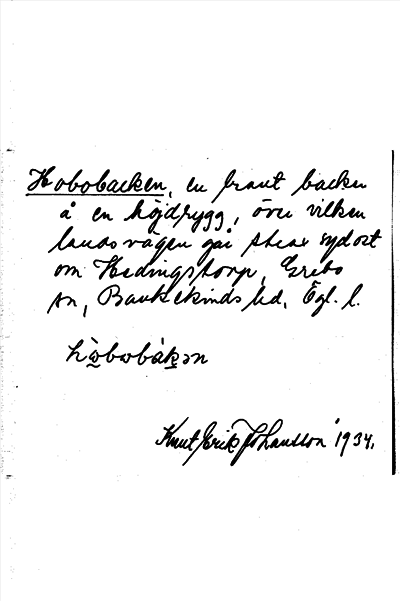 Hobobacken, en brant backe
å en höjdrygg, över vilken
landsvägen går strax sydost
om Hedingstorp, Grebo
sn, Bankekinds hd, Ögl. l.
Knut Erik Johansson 1934.